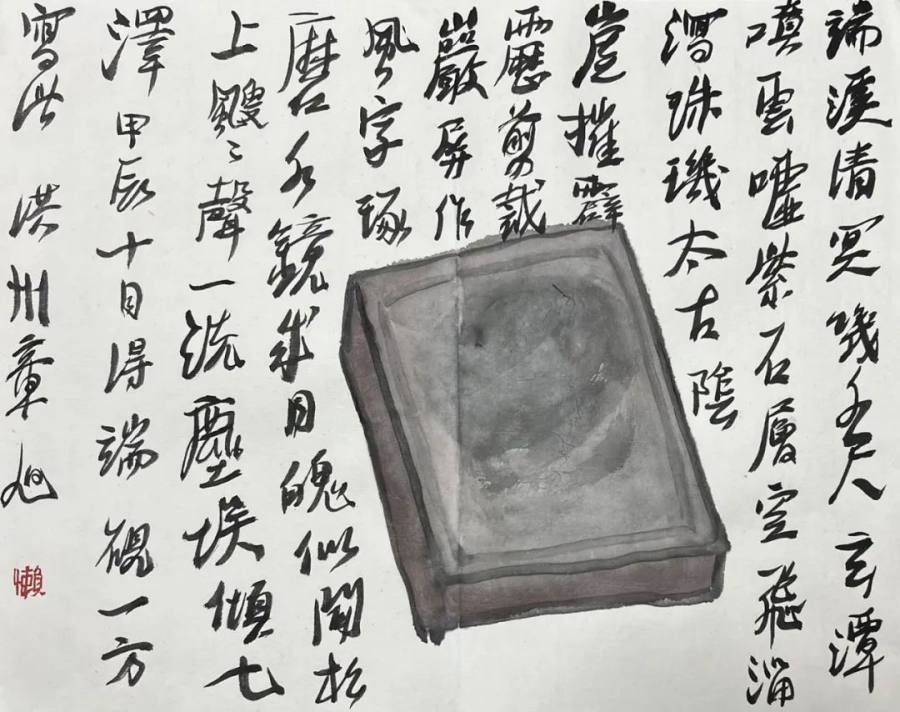 端溪清冥幾千尺玄潭
噴雲嘘紫石層空飛溜
瀉珠璣太古陰
崖摧霹
靂剪裁
巖屏作
風字琢
磨水鏡成月魄似聞松
上颼〻聲一洗塵埃傾七
澤甲辰十月得端硯一方
寫此 洪州章旭
懶